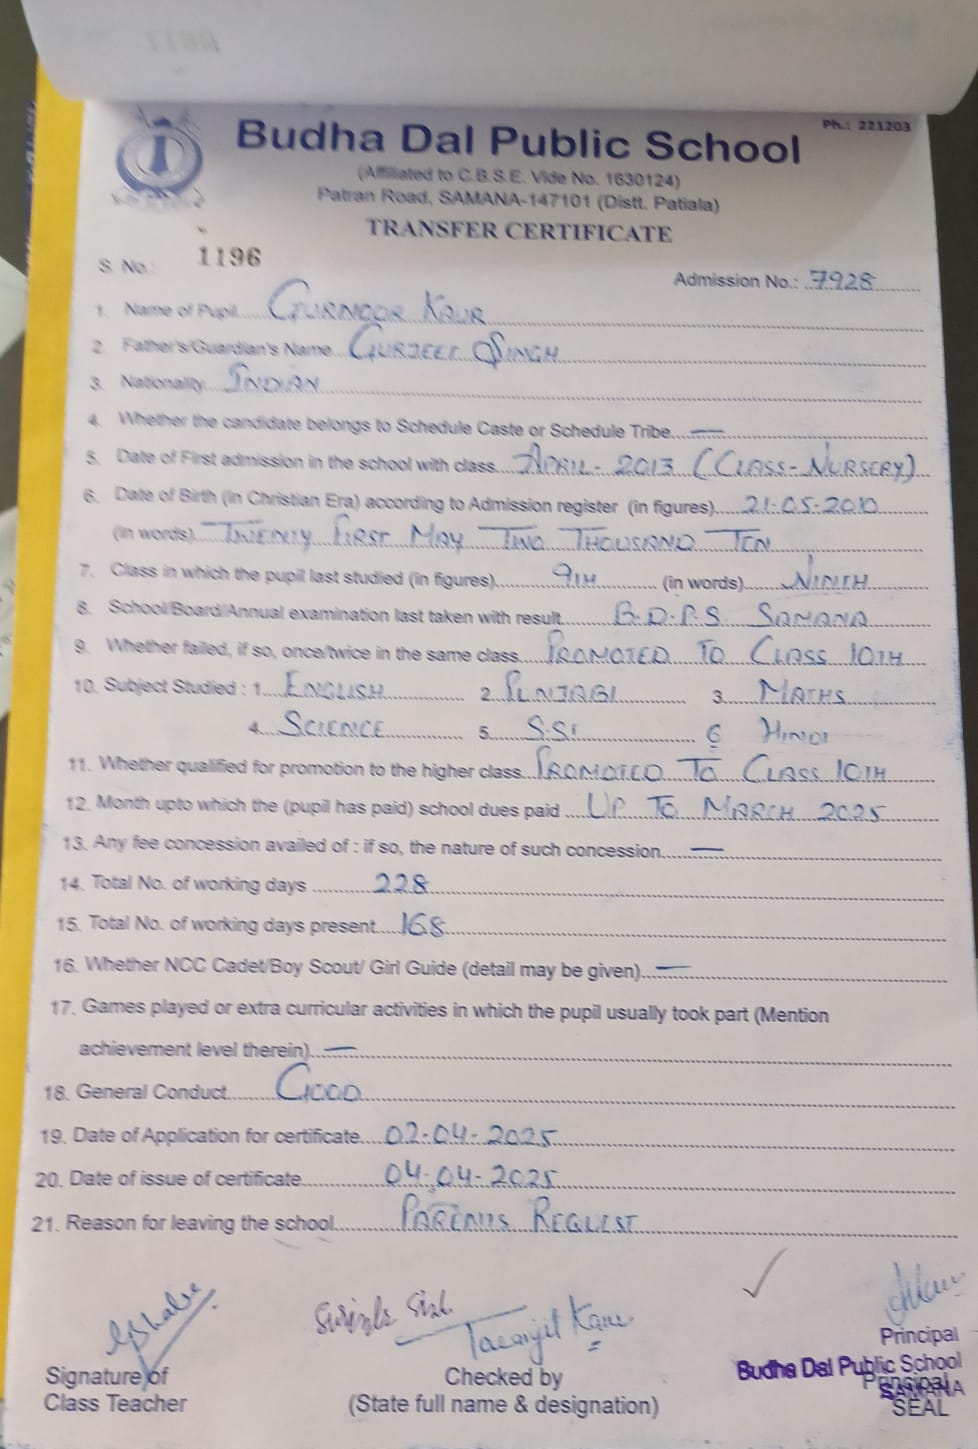 Ph.: 221203
Budha Dal Public School
(Affiliated to C.B.S.E. Vide No. 1630124)
Patran Road, SAMANA-147101 (Distt. Patiala)
TRANSFER CERTIFICATE
S. No.: 1196
Admission No.: 7928
1. Name of Pupil GURNOOR KAUR
2. Father's/Guardian's Name GURJEET SINGH
3. Nationality INDIAN
4. Whether the candidate belongs to Schedule Caste or Schedule Tribe —
5. Date of First admission in the school with class APRIL - 2013 (CLASS - NURSERY)
6. Date of Birth (in Christian Era) according to Admission register (in figures) 21-05-2010
(in words) TWENTY FIRST MAY TWO THOUSAND TEN
7. Class in which the pupil last studied (in figures) 9TH (in words) NINTH
8. School/Board/Annual examination last taken with result B.D.P.S. SAMANA
9. Whether failed, if so, once/twice in the same class PROMOTED TO CLASS 10TH
10. Subject Studied : 1. ENGLISH 2. PUNJABI 3. MATHS
4. SCIENCE 5. S.ST 6 HINDI
11. Whether qualified for promotion to the higher class PROMOTED TO CLASS 10TH
12. Month upto which the (pupil has paid) school dues paid UP TO MARCH 2025
13. Any fee concession availed of : if so, the nature of such concession —
14. Total No. of working days 228
15. Total No. of working days present 168
16. Whether NCC Cadet/Boy Scout/ Girl Guide (detail may be given) —
17. Games played or extra curricular activities in which the pupil usually took part (Mention
achievement level therein) —
18. General Conduct GOOD
19. Date of Application for certificate 02-04-2025
20. Date of issue of certificate 04-04-2025
21. Reason for leaving the school PARENTS REQUEST
Principal
Signature of Checked by Budha Dal Public School
Principal
SAMANA
Class Teacher (State full name & designation) SEAL